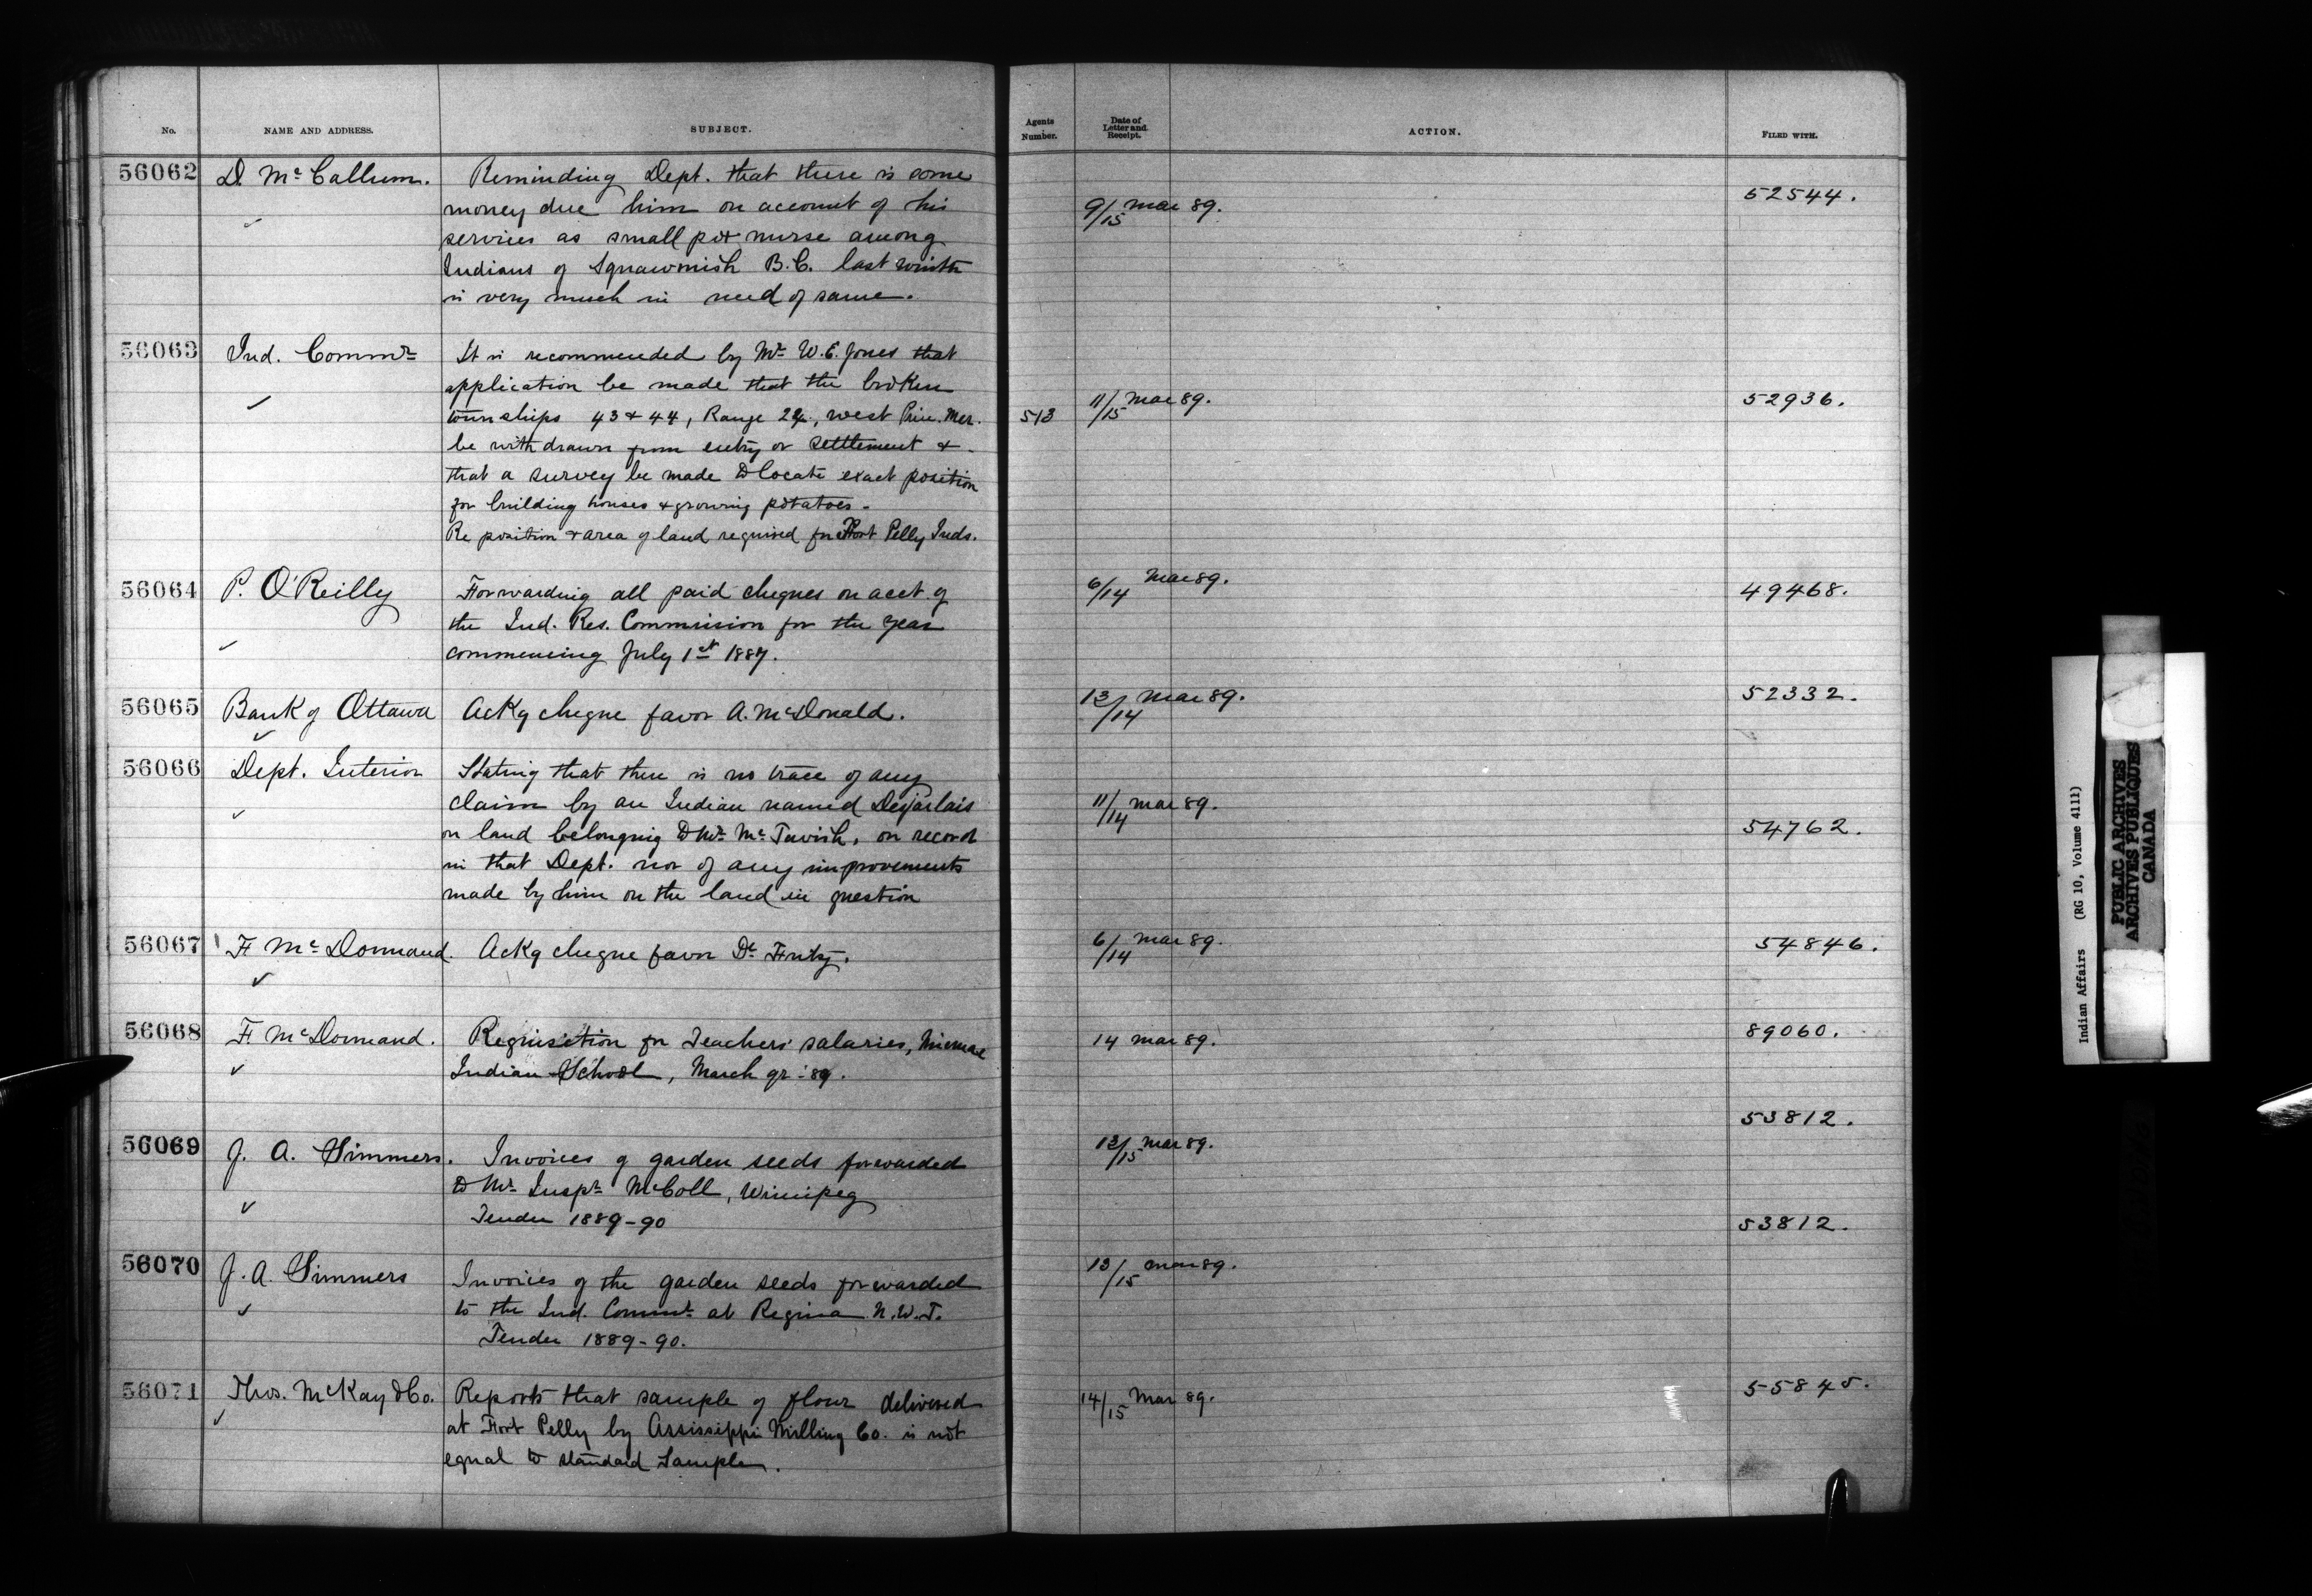 No. NAME AND ADDRESS. SUBJECT. Agents Number. Date of Letter and Receipt. ACTION. FILED WITH.
56062 D. McCallum. Reminding Dept. that there is some
money due him on account of his 9/15 Mar 89. 52544.
services as small pox nurse among
Indians of Squawmish B.C. last wint
is very much in need of same.
56063 Ind. Commr It is recommended by Mr W.E. Jones that
application be made that the broken
townships 43 & 44, Range 24, west Prin. Mer. 513 11/15 Mar 89. 52936.
be withdrawn from entry or settlement &
that a survey be made to locate exact position
for building houses & growing potatoes -
Re position & area of land required for Fort Pelly Inds.
56064 P. O'Reilly Forwarding all paid cheques on acct. of 6/14 Mar 89. 49468.
the Ind. Res. Commission for the year
commencing July 1st 1887.
56065 Bank of Ottawa Ackg cheque favor A. McDonald. 13/14 Mar 89. 52332.
56066 Dept. Interior Stating that there is no trace of any
claim by an Indian named Desjarlais 11/14 Mar 89.
on land belonging to Mr McTavish, on record 54762.
in that Dept. nor of any improvements
made by him on the land in question
56067 F McDormand. Ackg cheque favor Dr Fritz. 6/14 Mar 89. 54846.
56068 F. McDormand. Requisition for Teachers' salaries, Micmac 14 Mar 89. 89060.
Indian School, March qr. '89.
53812.
56069 J. A. Simmers. Invoices of garden seeds forwarded 13/15 Mar 89.
to Mr Inspr McColl, Winnipeg
Tender 1889-90
53812.
56070 J. A. Simmers Invoices of the garden seeds forwarded 13/15 Mar 89.
to the Ind. Commr at Regina N.W.T.
Tender 1889-90.
56071 Thos. McKay & Co. Reports that sample of flour delivered 14/15 Mar 89. 55845.
at Fort Pelly by Assissippi Milling Co. is not
equal to standard Sample.
Indian Affairs (RG 10, Volume 4111)
PUBLIC ARCHIVES
ARCHIVES PUBLIQUES
CANADA